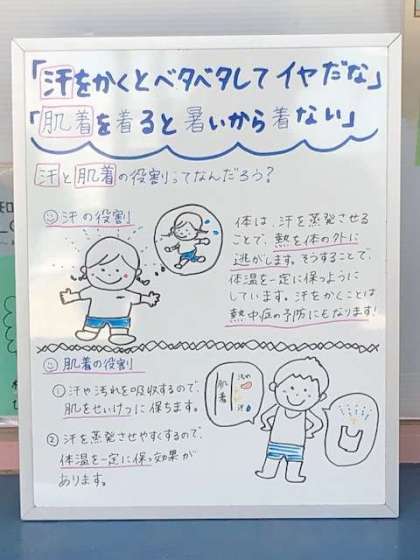 「汗をかくとベタベタしてイヤだな」
「肌着を着ると暑いから着ない」
汗と肌着の役割ってなんだろう?
汗の役割
体は、汗を蒸発させる
ことで、熱を体の外に
逃がします。そうすることで、
体温を一定に保つように
しています。汗をかくことは
熱中症の予防にもなります!
肌着の役割
①汗や汚れを吸収するので、
肌をせいけつに保ちます。
②汗を蒸発させやすくするので、
体温を一定に保つ効果が
あります。
肌着
汚れ
汗